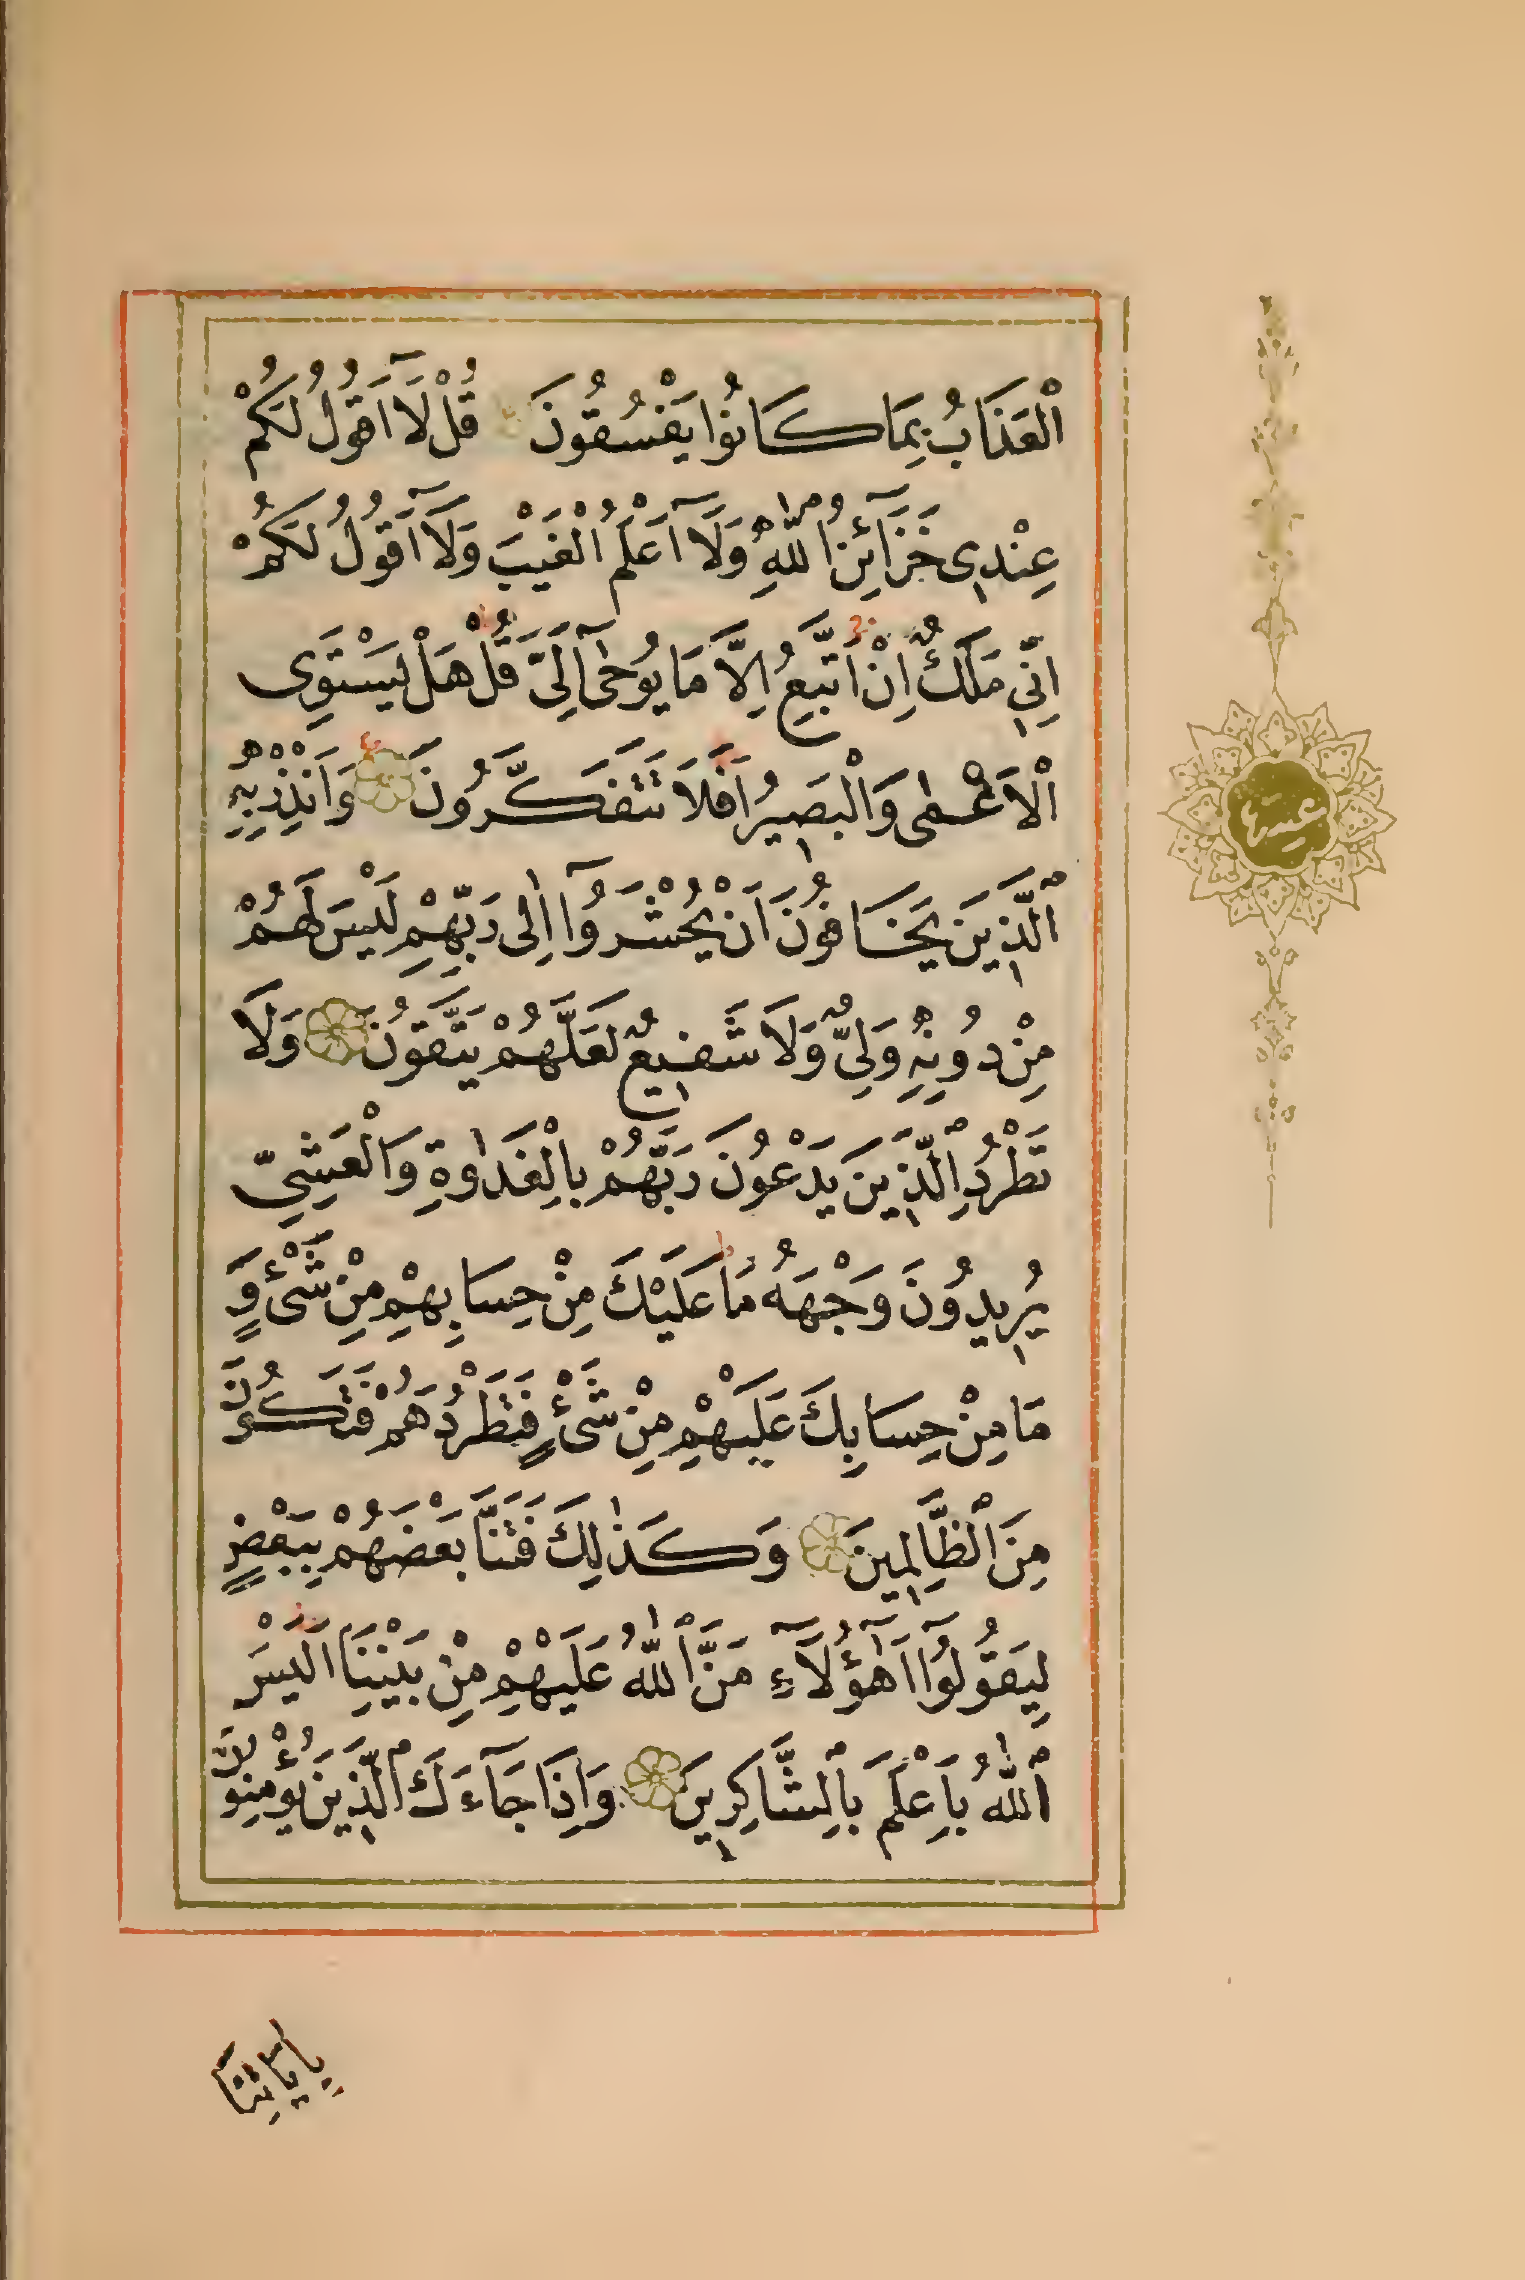 الْعَذَابُ بِمَا كَانُوا يَفْسُقُونَ قُلْ لَٓا اَقُولُ لَكُمْ
عِنْدِى خَزَٓائِنُ اللّٰهِ وَلَٓا اَعْلَمُ الْغَيْبَ وَلَٓا اَقُولُ لَكُمْ
اِنِّى مَلَكٌ اِنْ اَتَّبِعُ اِلَّا مَا يُوحٰٓى اِلَىَّ قُلْ هَلْ يَسْتَوِى
الْاَعْمٰى وَالْبَصِيرُ اَفَلَا تَتَفَكَّرُونَ وَاَنْذِرْ بِهِ
الَّذِينَ يَخَافُونَ اَنْ يُحْشَرُٓوا اِلٰى رَبِّهِمْ لَيْسَ لَهُمْ
مِنْ دُونِهِ وَلِىٌّ وَلَا شَفِيعٌ لَعَلَّهُمْ يَتَّقُونَ وَلَا
تَطْرُدِ الَّذِينَ يَدْعُونَ رَبَّهُمْ بِالْغَدٰوةِ وَالْعَشِىِّ
يُرِيدُونَ وَجْهَهُ مَا عَلَيْكَ مِنْ حِسَابِهِمْ مِنْ شَىْءٍ وَ
مَا مِنْ حِسَابِكَ عَلَيْهِمْ مِنْ شَىْءٍ فَتَطْرُدَهُمْ فَتَكُونَ
مِنَ الظَّالِمِينَ وَكَذٰلِكَ فَتَنَّا بَعْضَهُمْ بِبَعْضٍ
لِيَقُولُٓوا اَهٰٓؤُلَٓاءِ مَنَّ اللّٰهُ عَلَيْهِمْ مِنْ بَيْنِنَا اَلَيْسَ
اللّٰهُ بِاَعْلَمَ بِالشَّاكِرِينَ وَاِذَا جَٓاءَكَ الَّذِينَ يُؤْمِنُونَ
بِاٰيَاتِنَا